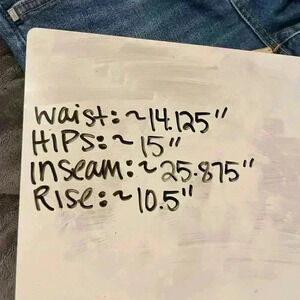 Waist: ~14.125"
HIPS: ~15"
inseam: ~25.875"
RISe: ~10.5"